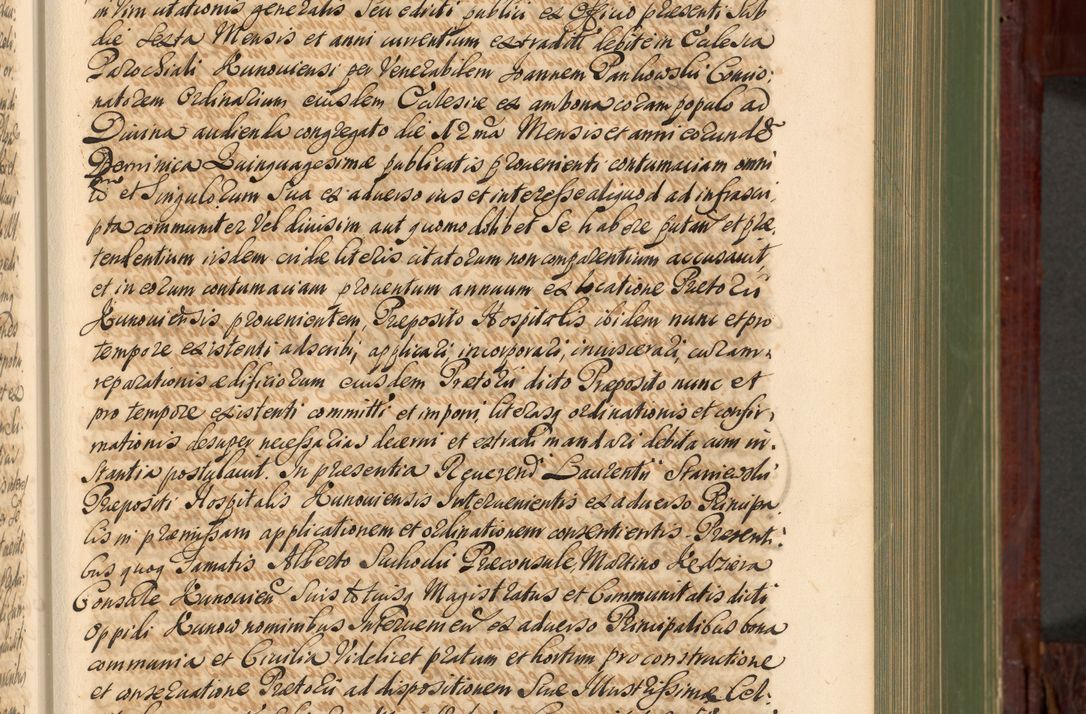 in Vim citationis generalis Seu edicti publici ex Officio presenti Sub
die Sexta Mensis et anni currentium extraditi legitè in Ecclesia
Parochiali Kunoviensi per Venerabilem Joannem Pankowski Concio-
natorem Ordinarium eiusdem Ecclesiæ ex ambona coram populo ad
Divina audienda congregato die 12ma Mensis et anni eorundē
Dominica Quinquagesimæ publicatis provenienti contumaciam omni
et Singulorum Sua ex adverso ius et interesse aliquod ad infrascri,
pta communiter Vel divisim aut quomodolibet Se habere putan et præ,
tendentium iisdem literis citatorum non comparentium accusavit
et in eorum contumaciam proventum annuum ex locatione Pretorii
Kunoviensis provenientem, Præposito Hospitalis ibidem nunc et pro
tempore existenti adscribi, applicari, incorporari, inviscerari, curam
reparationis ædificiorum eiusdem Pretorii dicto Præposito nunc et
pro tempore existenti committi et imponi, literasq ordinationis et confir-
mationis desuper necessarias decerni et extradi mandari debita cum in-
stantia postulavit. In præsentia Reverendi Laurentii
Præpositi Hospitalis Kunoviensis Intervenientis ex adverso Principa
lis in præmissam applicationem et ordinationem consentientis. Presenti-
bus quoq Famatis Alberto Suchodii Præconsule, Martino
Consule Kunovien Suis totiusq Magistratus et Communitatis dicti
Oppidi Kunow nominibus Intervenien ex adverso Principalibus bona
communia et Civilia Videlicet pratum et hortum pro constructione
et conservatione Pretorii ad dispositionem Suæ Illustrissimæ Cel-